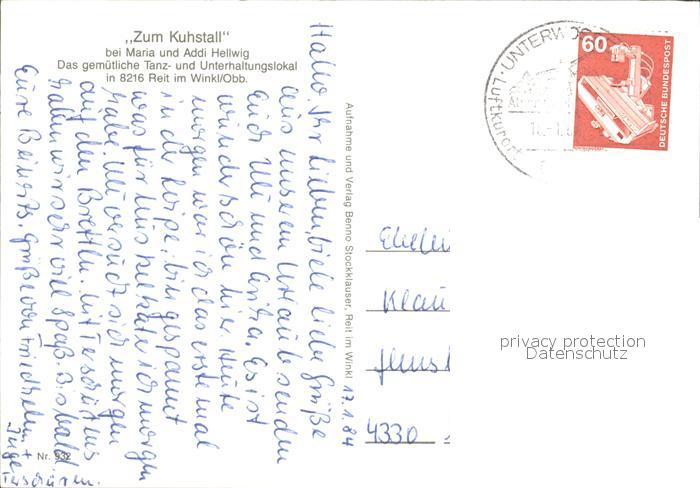 „Zum Kuhstall"
bei Maria und Addi Hellwig
Das gemütliche Tanz- und Unterhaltungslokal
in 8216 Reit im Winkl/Obb.
17.1.84
Hallo Ihr Lieben, viele liebe Grüße
aus unserem Urlaub senden
Euch Uli und Anita. Es ist
wunderschön hier. Heute
morgen war ich das erste mal
in der Loipe, bin gespannt
was für Muskelkater ich morgen
habe. Uli versucht sich morgen
auf den Brettln. Mit Teschütius
haben wir sehr viel Spaß. Bis bald
Eure Beinerts. Grüße von Friedhelm +
Inge
Nr. 932
Aufnahme und Verlag Benno Stockklauser, Reit im Winkl
UNTERW
Luftkurort
60
DEUTSCHE BUNDESPOST
Klau
4330
privacy protection
Datenschutz